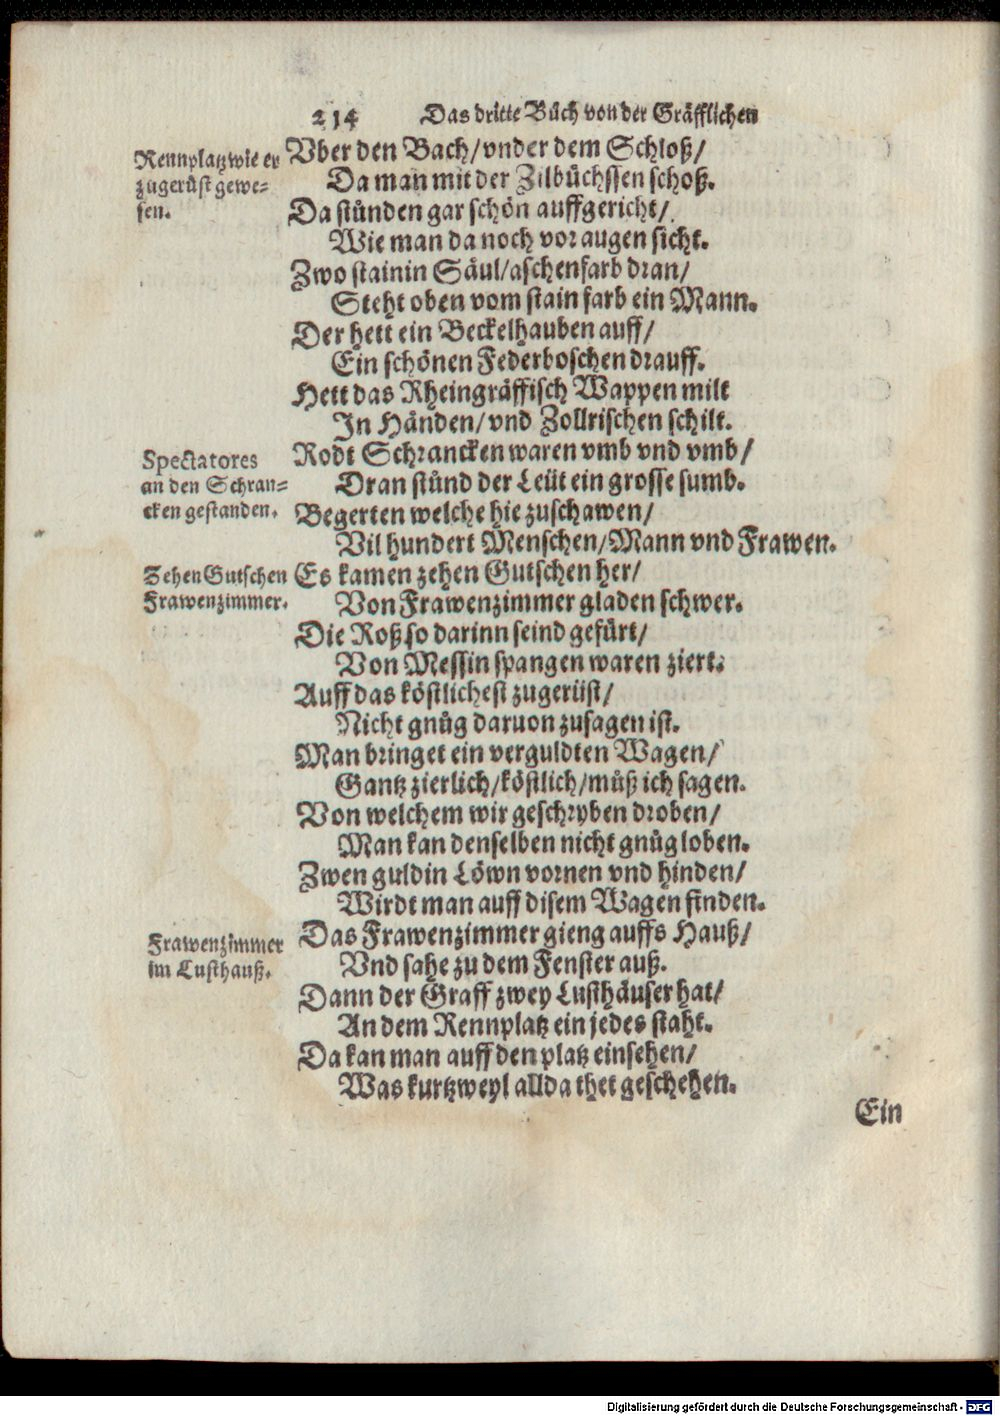 214 Das dritte Bůch von der Gräfflichen
Rennplatz wie er
zugerüst gewe-
sen.
Vber den Bach/ vnder dem Schloß/
Da man mit der Zilbüchssen schoß.
Da stůnden gar schön auffgericht/
Wie man da noch vor augen sicht.
Zwo stainin Säul/ aschenfarb dran/
Steht oben vom stain farb ein Mann.
Der hett ein Beckelhauben auff/
Ein schönen Federboschen drauff.
Hett das Rheingräffisch Wappen milt
In Händen/ vnd Zollrischen schilt.
Spectatores
an den Schran-
cken gestanden.
Rodt Schrancken waren vmb vnd vmb/
Dran stůnd der Leüt ein grosse sumb.
Begerten welche hie zuschawen/
Vil hundert Menschen/ Mann vnd Frawen.
Zehen Gutschen
Frawenzimmer.
Es kamen zehen Gutschen her/
Von Frawenzimmer gladen schwer.
Die Roß so darinn seind gefürt/
Von Messin spangen waren ziert.
Auff das köstlichest zugerüst/
Nicht gnůg daruon zusagen ist.
Man bringet ein verguldten Wagen/
Gantz zierlich/ köstlich/ můß ich sagen.
Von welchem wir geschryben droben/
Man kan denselben nicht gnůg loben.
Zwen guldin Löwn vornen vnd hinden/
Wirdt man auff disem Wagen finden.
Frawenzimmer
im Lusthauß.
Das Frawenzimmer gieng auffs Hauß/
Vnd sahe zu dem Fenster auß.
Dann der Graff zwey Lusthäuser hat/
An dem Rennplatz ein jedes staht.
Da kan man auff den platz einsehen/
Was kurtzweyl allda thet geschehen.
Ein
Digitalisierung gefördert durch die Deutsche Forschungsgemeinschaft - DFG